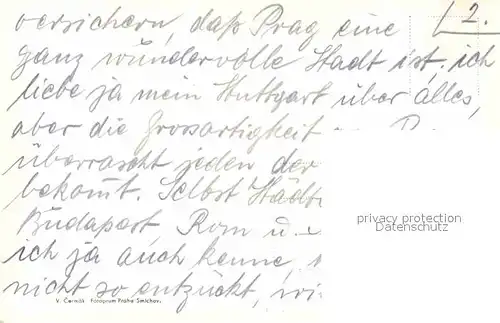 2.
versichern, daß Prag eine
ganz wundervolle Stadt ist, ich
liebe ja mein Stuttgart über alles,
aber die Grossartigkeit
überrascht jeden der
bekomt. Selbst Städte
Budapest, Rom u.
ich ja auch kenne,
nicht so entzückt, wi
privacy protection
Datenschutz
V. Čermák Fotogrum Praha Smíchov.